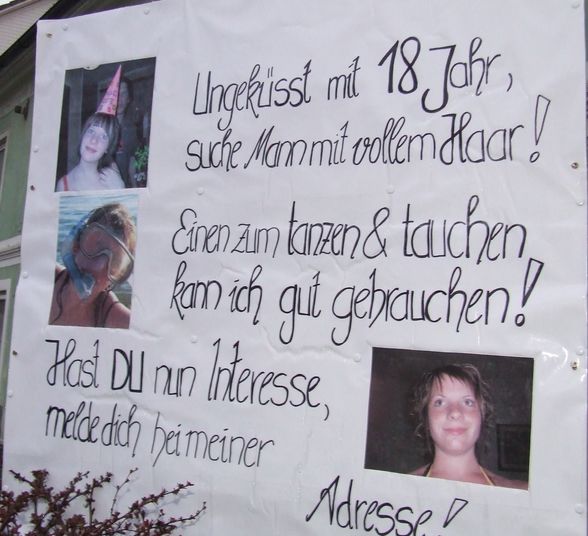 Ungeküsst mit 18 Jahr,
suche Mann mit vollem Haar!
Einen zum tanzen & tauchen
kann ich gut gebrauchen!
Hast DU nun Interesse,
melde dich bei meiner
Adresse!